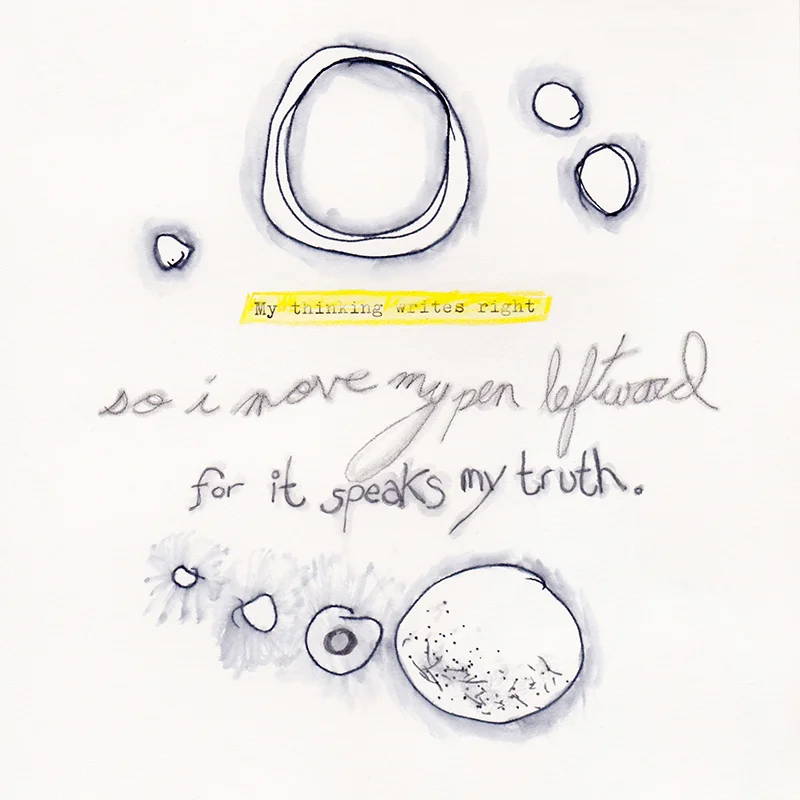 My thinking writes right
so i move my pen leftward
for it speaks my truth.